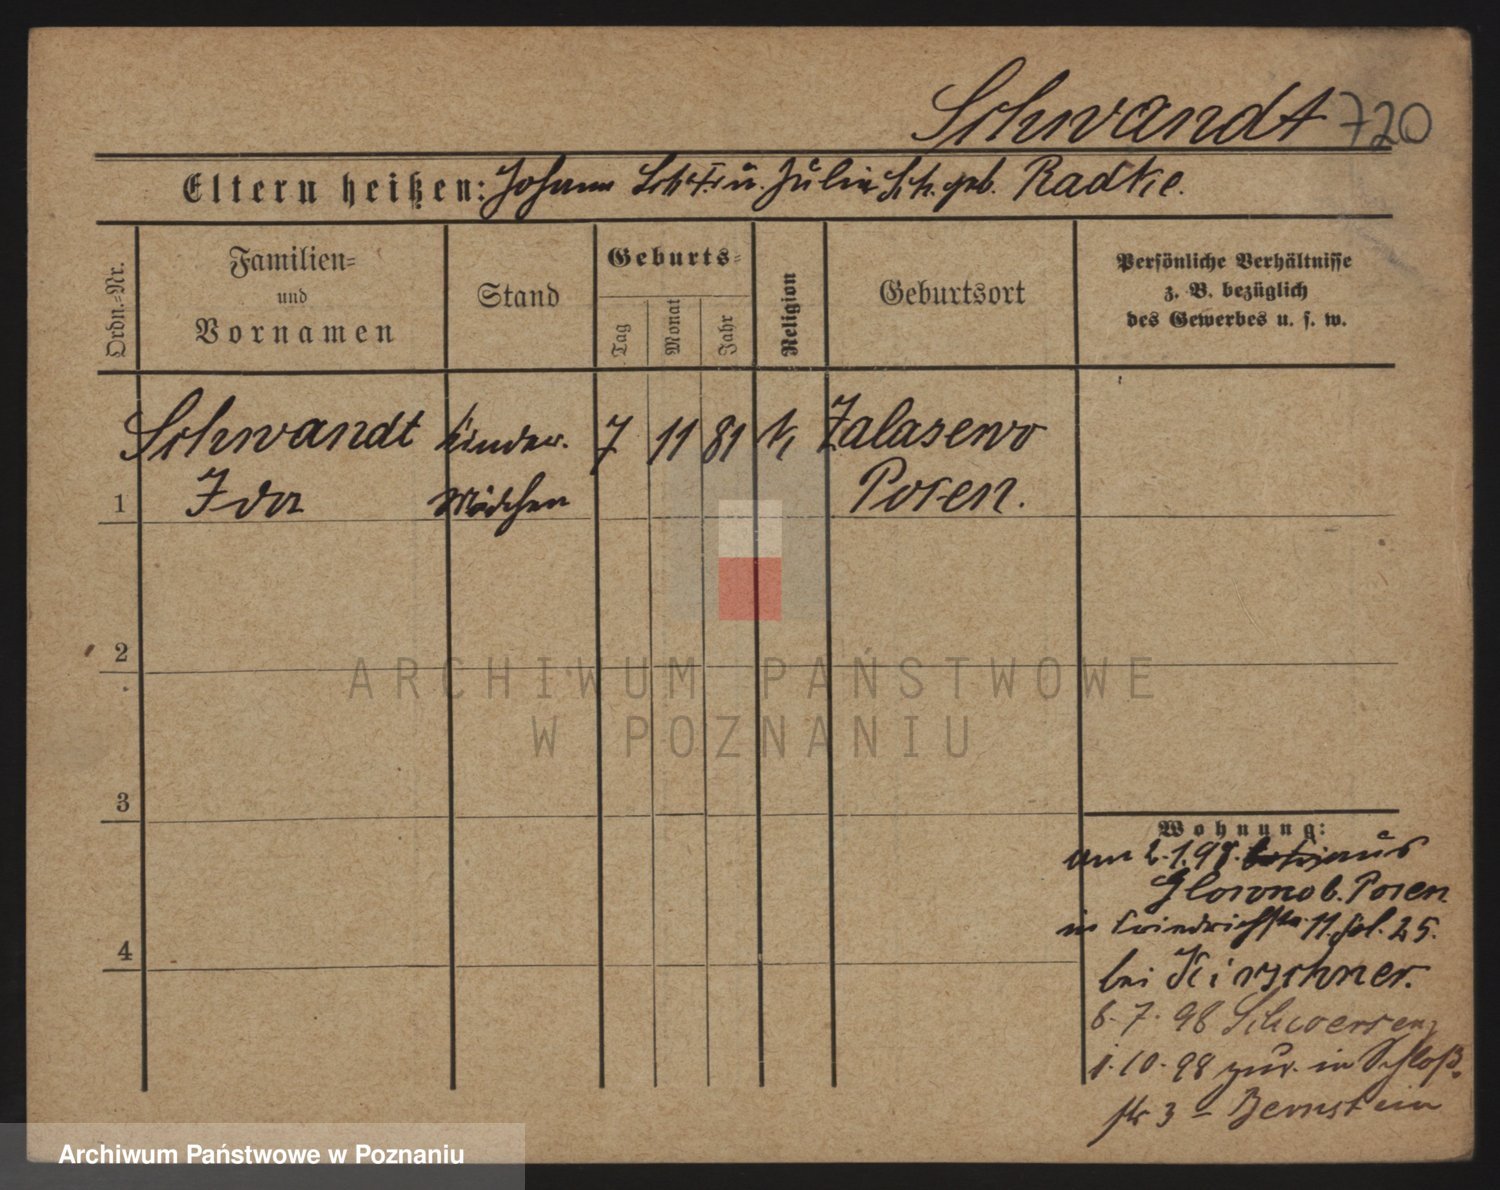 Schwandt 720
Eltern heißen: Johann Sch u. Julia Sch. geb. Radtke.
Ordn.=Nr.
Familien=
und
Vornamen
Stand
Geburts=
Tag
Monat
Jahr
Religion
Geburtsort
Persönliche Verhältnisse
z. B. bezüglich
des Gewerbes u. s. w.
Schwandt Kinder. 7 11 81 k Zalasewo
1 Ida Mädchen Posen.
2
3
4
Wohnung:
am 2.1.98. aus
Glowno b. Posen
in Friedrichstr. 11. 25.
bei Kirschner.
6. 7. 98 Schwersenz
1. 10. 98 zur. in Schloß
str 3 – Bernstein
ARCHIWUM PAŃSTWOWE
W POZNANIU
Archiwum Państwowe w Poznaniu